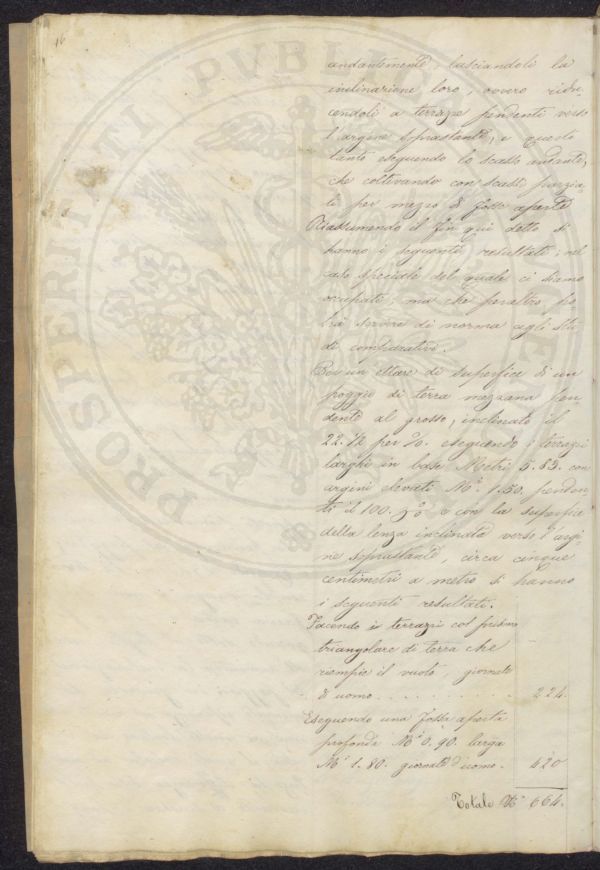 16
andantemente, lasciandoli la
inclinazione loro, ovvero ridu
cendoli a terrazze pendenti verso
l'argine soprastante, e questo
tanto eseguendo lo scasso andante,
che coltivando con scasso parzia
le per mezzo di fosse aperte
Riassumendo il fin qui detto si
hanno i seguenti resultati, nel
caso speciale del quale ci siamo
occupati, ma che peraltro po
trà servire di norma agli Stu
di comparativi.
Per un ettare di superfice di un
poggio di terra mezzana pen
dente al grosso, inclinato il
22.½ per %. eseguendo i terrazzi
larghi in base Metri 5.83. con
argini elevati Mi. 1.50. penden
ti il 100. % e con la superfice
della lenza inclinata verso l'argi
ne soprastante, circa cinque
centimetri a metro si hanno
i seguenti resultati.
Facendo i terrazzi col prisma
triangolare di terra che
riempie il vuoto, giornate
di uomo . . . . . . . . . . 224.
Eseguendo una fossa aperta
profonda Mi 0.90. larga
Mi 1.80. giornate d'uomo. 420
Totale No 664.
PROSPERITATI PVBLICAE